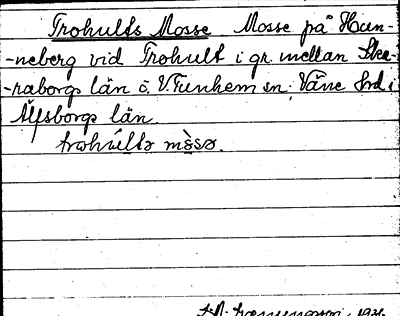 Trohults Mosse Mosse på Hun-
-neberg vid Trohult i gr. mellan Ska-
-raborgs län o. V. Tunhem sn. Väne hrd i
Älfsborgs län.
trohults mosse.
1931